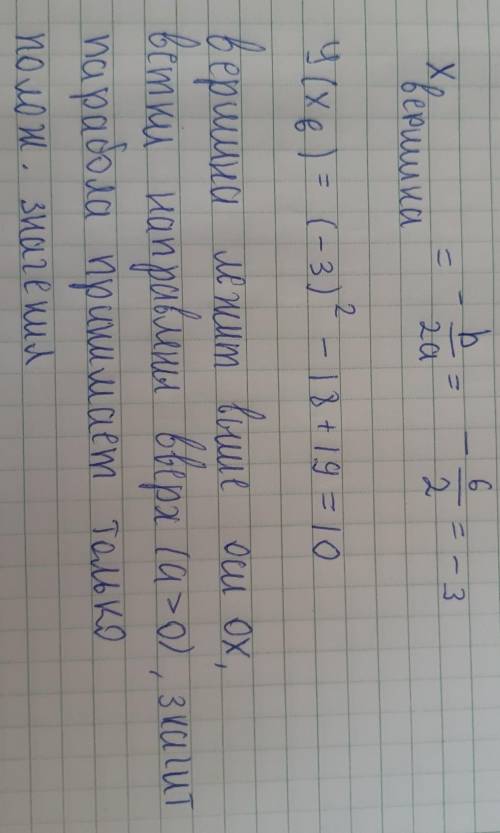 x вершина = - b/2a = - 6/2 = -3
y(xв) = (-3)² - 18 + 19 = 10
вершина лежит выше оси ох,
ветки направлены вверх (a>0), значит
парабола принимает только
полож. значения